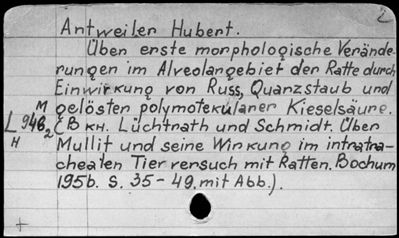 2
Antweiler Hubert.
Über erste morphologische Verände-
rungen im Alveolargebiet der Ratte durch
Einwirkung von Russ, Quarzstaub und
gelösten polymotekulaner Kieselsäure.
L 946 2 M H
(В кн. Lüchtrath und Schmidt. Über
Mullit und seine Wirkung im intratra-
cheaten Tierversuch mit Ratten. Bochum
195b. S. 35-49. mit Abb.).
+